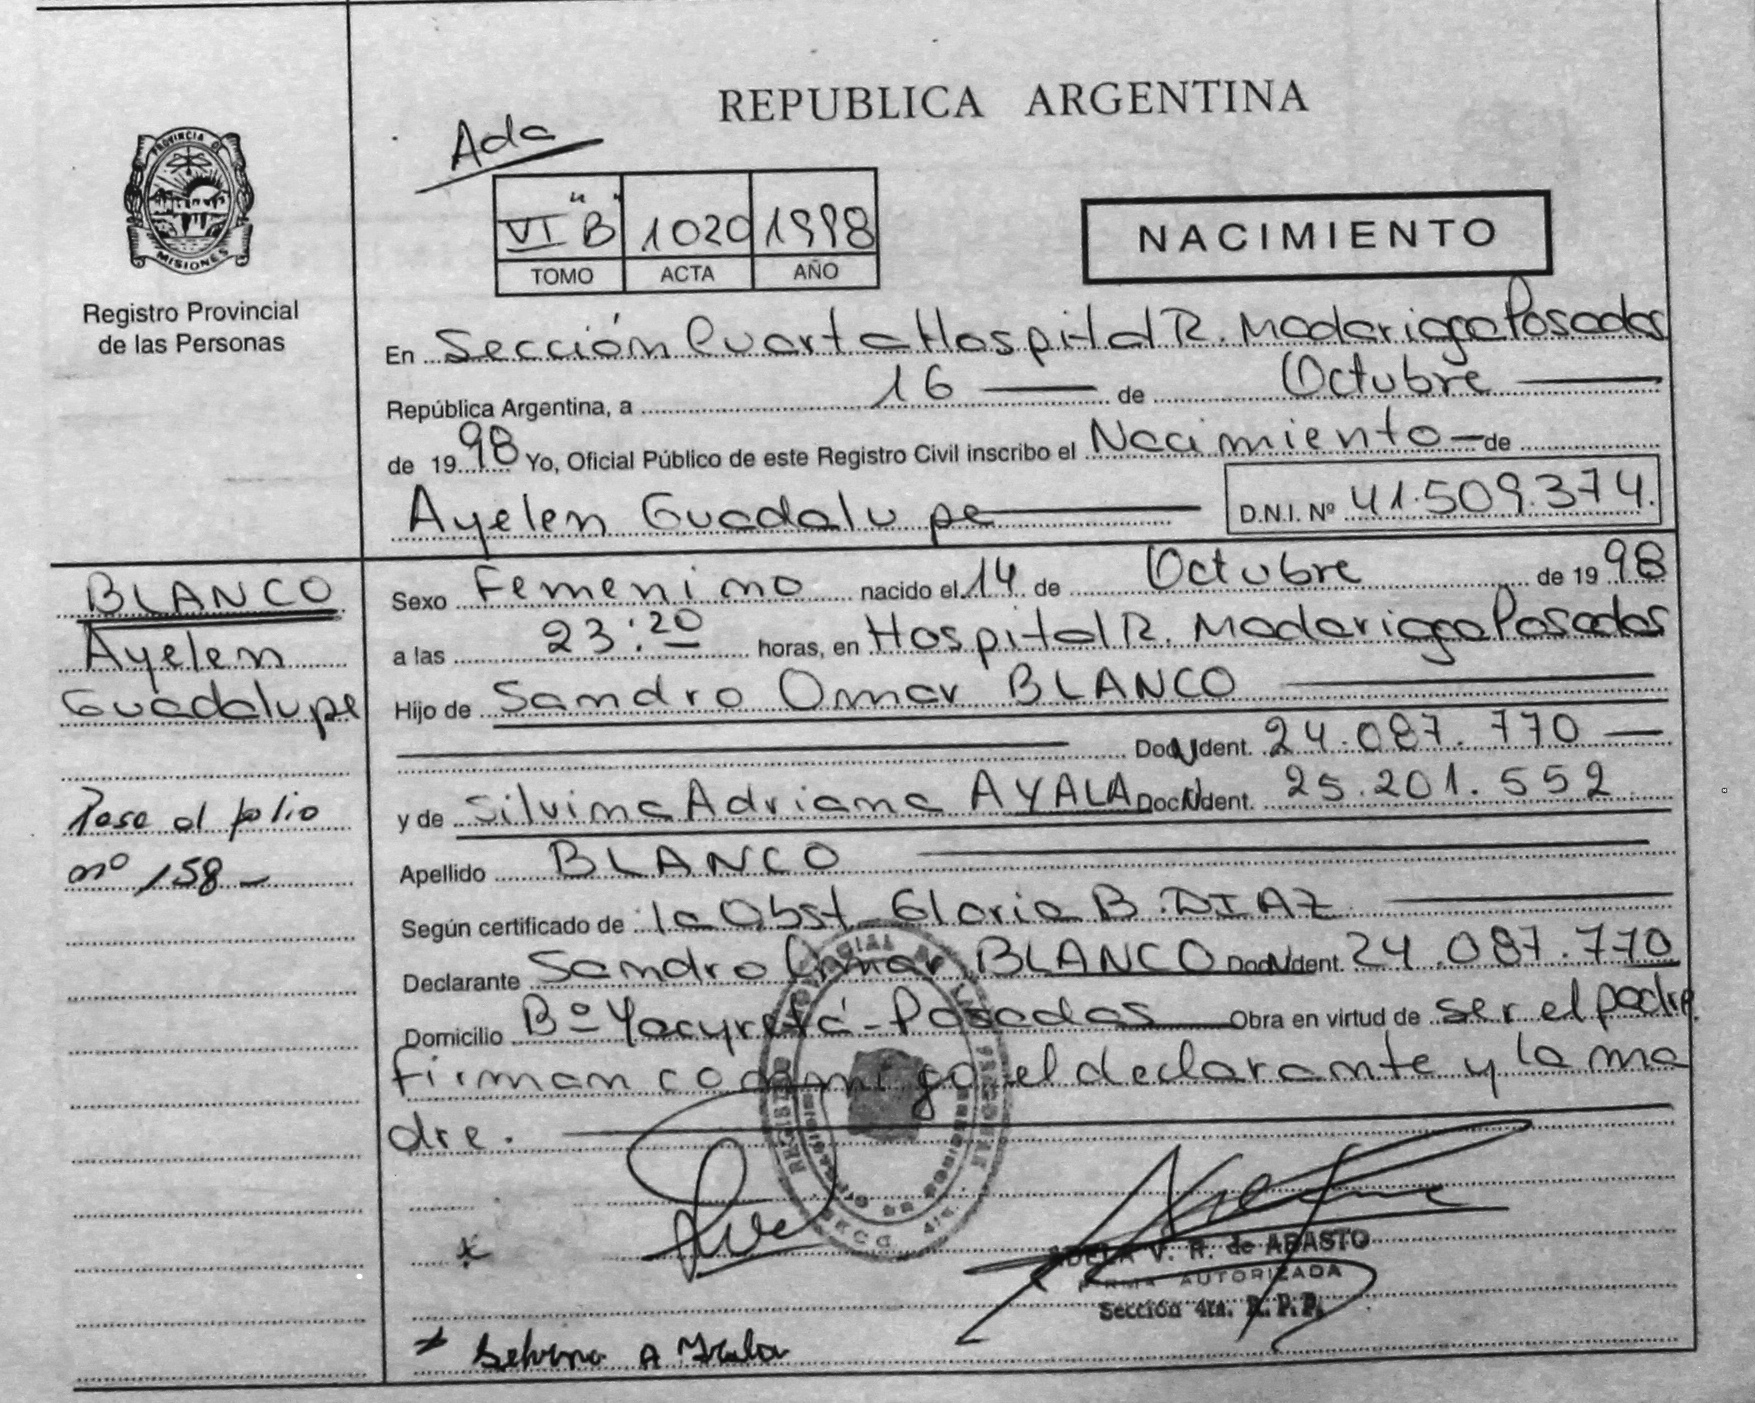 REPUBLICA ARGENTINA
Ada
PROVINCIA D
MISIONES
Registro Provincial
de las Personas
VI "B" 1020 1998
TOMO ACTA AÑO
NACIMIENTO
En Sección Cuarta Hospital R. Madariaga Posadas
República Argentina, a 16 de Octubre
de 1998 Yo, Oficial Público de este Registro Civil inscribo el Nacimiento de
Ayelen Guadalupe D.N.I. Nº 41.509.374.
BLANCO
Ayelen
Guadalupe
Pase al folio
nº 158
Sexo Femenino nacido el 14 de Octubre de 1998
a las 23:20 horas, en Hospital R. Madariaga Posadas
Hijo de Sandro Omar BLANCO
Doc N Ident. 24.087.770
y de Silvina Adriana AYALA Doc N Ident. 25.201.552
Apellido BLANCO
Según certificado de la Obst. Gloria B. DIAZ
Declarante Sandro Omar BLANCO Doc N Ident. 24.087.770
Domicilio Bº Yacyretá - Posadas Obra en virtud de ser el padre.
firman conmigo el declarante y la ma
dre.
ADELA V. R. de ABASTO
FIRMA AUTORIZADA
Sección 4ta. R. P. P.